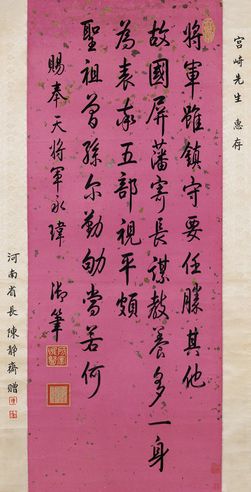 宮崎先生 惠存
將軍雖鎮守要任勝其他
故國屏藩寄長謀教養多一身
為表率五部視平頗
聖祖曾孫尔勤劬當若何
賜奉天將軍永瑋 御筆
河南省長陳靜齋贈